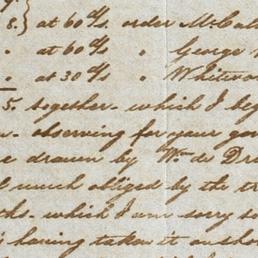 8. } at 60 d/s. order McCall
" at 60 d/s " George
" at 30 d/s " Whitwo
5. together - which I beg
observing for your gov
e drawn by Wm. de Dr
l much obliged by the tr
ths - which I am sorry so
having taken it